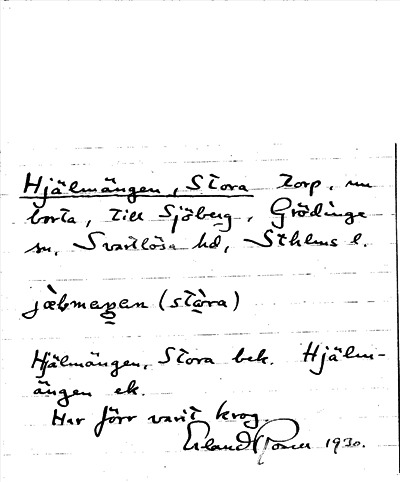 Hjälmängen, Stora torp, nu
borta, till Sjöberg, Grödinge
sn, Svartlösa hd, Sthlms l.
jæ̀lmaŋen (stàra)
Hjälmängen, Stora bek. Hjälm-
ängen ek.
Har förr varit krog.
Erland Rosell 1930.